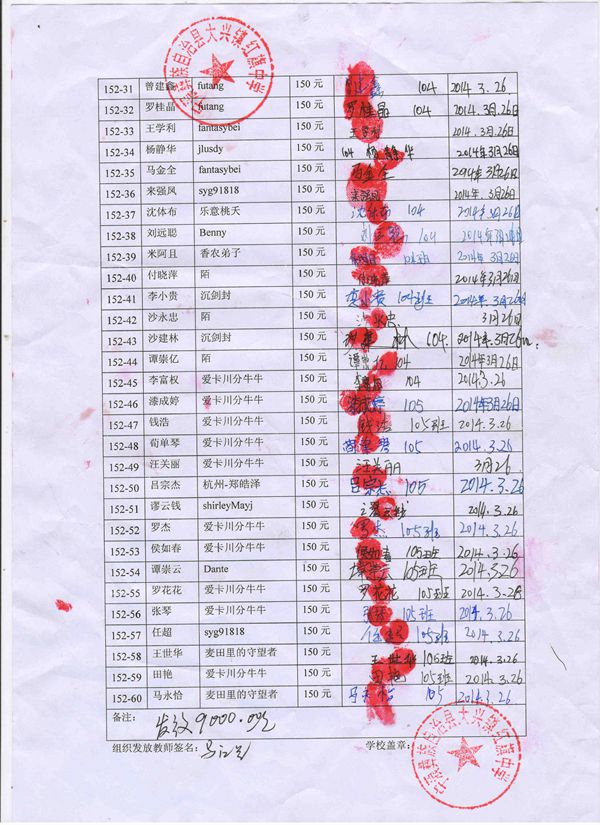 宁蒗彝族自治县大兴镇红旗中学
152-31 曾建鑫 futang 150 元 104 2014.3.26
152-32 罗桂晶 futang 150 元 罗桂晶 104 2014.3月26日
152-33 王学利 fantasybei 150 元 王学利 2014.3月26日
152-34 杨静华 jlusdy 150 元 104 杨静华 2014年3月26日
152-35 马金全 fantasybei 150 元 马金全 2014年3月26日
152-36 来强凤 syg91818 150 元 来强凤 2014年.3月26日
152-37 沈体布 乐意桃夭 150 元 沈体布 104 2014年.3月26日
152-38 刘远聪 Benny 150 元 104 2014年3月26日
152-39 米阿且 香农弟子 150 元 2014年.3月26日
152-40 付晓萍 陌 150 元 2014年3月26日
152-41 李小贵 沉剑封 150 元 李小贵 104班 2014年.3月26日
152-42 沙永忠 陌 150 元 沙永忠 3月26日
152-43 沙建林 沉剑封 150 元 林 104. 2014年.3月26日
152-44 谭崇亿 陌 150 元 谭 亿 104 2014年3月26日
152-45 李富权 爱卡川分牛牛 150 元 104 2014.3.26
152-46 漆成婷 爱卡川分牛牛 150 元 漆成婷 105 2014年3月26日
152-47 钱浩 爱卡川分牛牛 150 元 钱浩 105班 2014.3.26
152-48 荀单琴 爱卡川分牛牛 150 元 105 2014.3.26
152-49 汪关丽 爱卡川分牛牛 150 元 汪关丽 3月26
152-50 吕宗杰 杭州-郑皓泽 150 元 吕宗杰 105 2014.3.26
152-51 谬云钱 shirleyMayj 150 元 2014.3.26
152-52 罗杰 爱卡川分牛牛 150 元 罗杰 105班 2014.3.26
152-53 侯如春 爱卡川分牛牛 150 元 侯如春 105班 2014.3.26
152-54 谭崇云 Dante 150 元 谭崇云 105班 2014.3.26
152-55 罗花花 爱卡川分牛牛 150 元 罗花花 105班 2014.3.26
152-56 张琴 爱卡川分牛牛 150 元 张琴 105班 2014.3.26
152-57 任超 syg91818 150 元 105班 2014.3.26
152-58 王世华 麦田里的守望者 150 元 王世华 105班 2014.3.26
152-59 田艳 爱卡川分牛牛 150 元 田艳 105班 2014.3.26
152-60 马永恰 麦田里的守望者 150 元 105 2014.3.26
备注: 发放9000.00元
组织发放教师签名: 学校盖章:
宁蒗彝族自治县大兴镇红旗中学